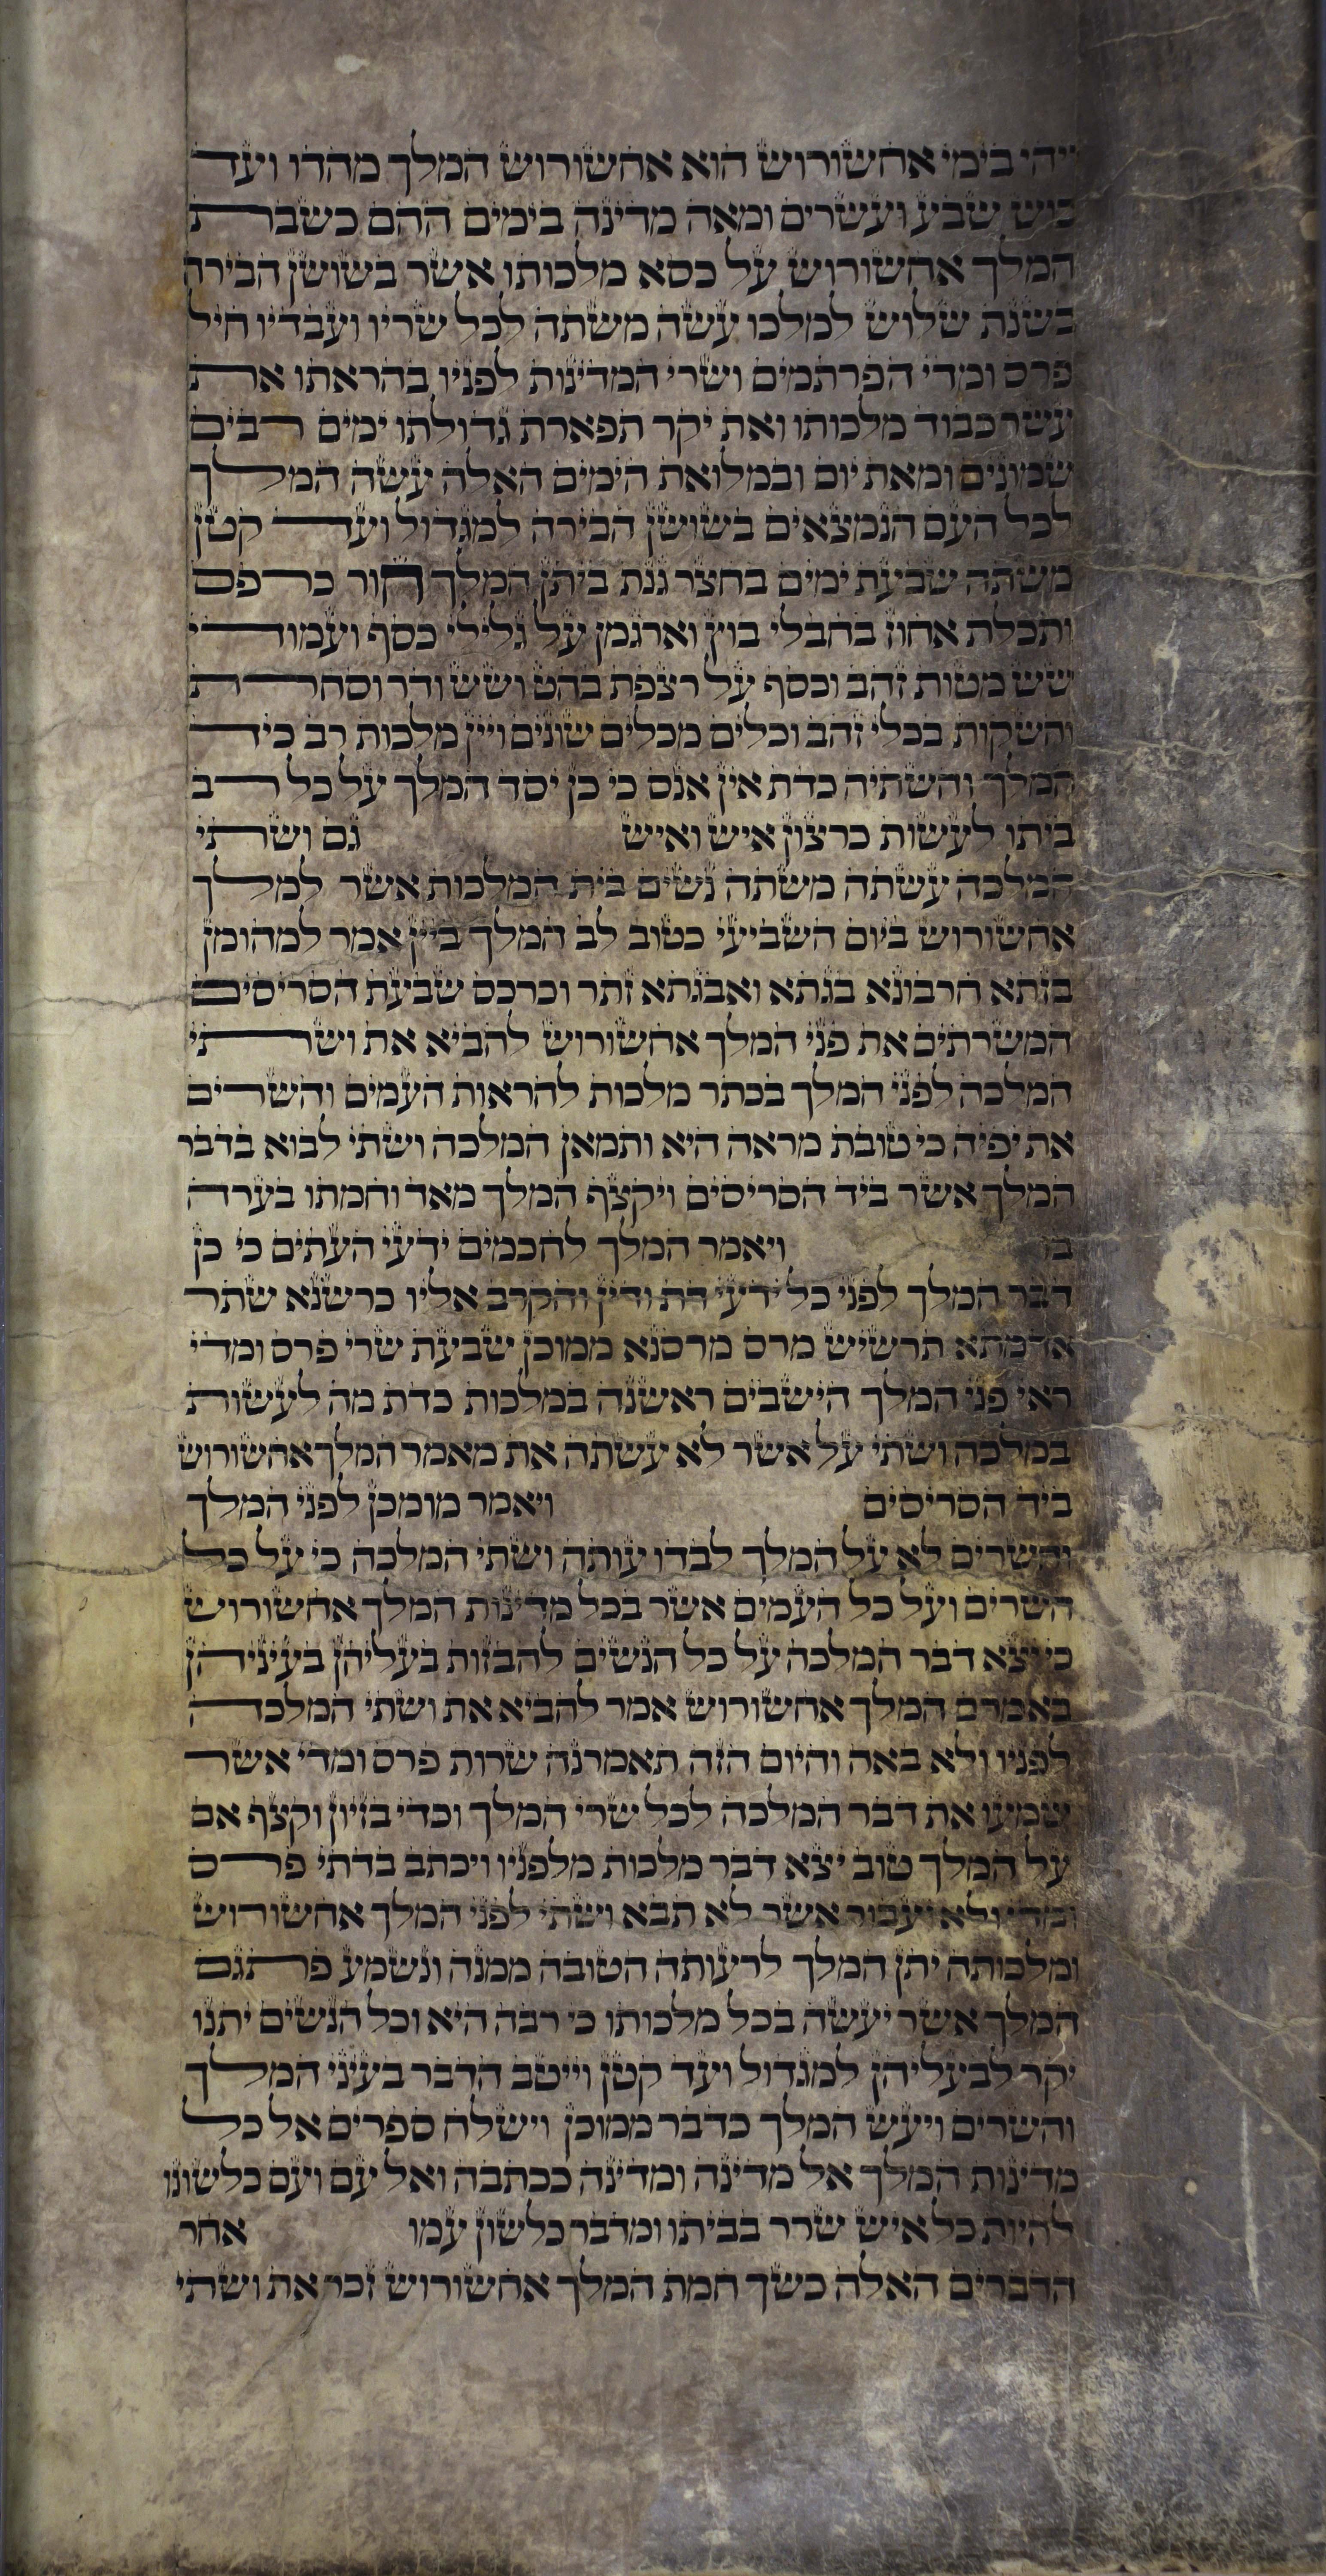 ויהי בימי אחשורוש הוא אחשורוש המלך מהדו ועד
כוש שבע ועשרים ומאה מדינה בימים ההם כשבת
המלך אחשורוש על כסא מלכותו אשר בשושן הבירה
בשנת שלוש למלכו עשה משתה לכל שריו ועבדיו חיל
פרס ומדי הפרתמים ושרי המדינות לפניו בהראתו את
עשר כבוד מלכותו ואת יקר תפארת גדולתו ימים רבים
שמונים ומאת יום ובמלואת הימים האלה עשה המלך
לכל העם הנמצאים בשושן הבירה למגדול ועד קטן
משתה שבעת ימים בחצר גנת ביתן המלך חור כרפס
ותכלת אחוז בחבלי בוץ וארגמן על גלילי כסף ועמודי
שש מטות זהב וכסף על רצפת בהט ושש ודר וסחרת
והשקות בכלי זהב וכלים מכלים שונים ויין מלכות רב כיד
המלך והשתיה כדת אין אנס כי כן יסד המלך על כל רב
ביתו לעשות כרצון איש ואיש גם ושתי
המלכה עשתה משתה נשים בית המלכות אשר למלך
אחשורוש ביום השביעי כטוב לב המלך ביין אמר למהומן
בזתא חרבונא בגתא ואבגתא זתר וכרכס שבעת הסריסים
המשרתים את פני המלך אחשורוש להביא את ושתי
המלכה לפני המלך בכתר מלכות להראות העמים והשרים
את יפיה כי טובת מראה היא ותמאן המלכה ושתי לבוא בדבר
המלך אשר ביד הסריסים ויקצף המלך מאד וחמתו בערה
בו ויאמר המלך לחכמים ידעי העתים כי כן
דבר המלך לפני כל ידעי דת ודין והקרב אליו כרשנא שתר
אדמתא תרשיש מרס מרסנא ממוכן שבעת שרי פרס ומדי
ראי פני המלך הישבים ראשנה במלכות כדת מה לעשות
במלכה ושתי על אשר לא עשתה את מאמר המלך אחשורוש
ביד הסריסים ויאמר מומכן לפני המלך
והשרים לא על המלך לבדו עותה ושתי המלכה כי על כל
השרים ועל כל העמים אשר בכל מדינות המלך אחשורוש
כי יצא דבר המלכה על כל הנשים להבזות בעליהן בעיניהן
באמרם המלך אחשורוש אמר להביא את ושתי המלכה
לפניו ולא באה והיום הזה תאמרנה שרות פרס ומדי אשר
שמעו את דבר המלכה לכל שרי המלך וכדי בזיון וקצף אם
על המלך טוב יצא דבר מלכות מלפניו ויכתב בדתי פרס
ומדי ולא יעבור אשר לא תבא ושתי לפני המלך אחשורוש
ומלכותה יתן המלך לרעותה הטובה ממנה ונשמע פתגם
המלך אשר יעשה בכל מלכותו כי רבה היא וכל הנשים יתנו
יקר לבעליהן למגדול ועד קטן וייטב הדבר בעיני המלך
והשרים ויעש המלך כדבר ממוכן וישלח ספרים אל כל
מדינות המלך אל מדינה ומדינה ככתבה ואל עם ועם כלשונו
להיות כל איש שרר בביתו ומדבר כלשון עמו אחר
הדברים האלה כשך חמת המלך אחשורוש זכר את ושתי